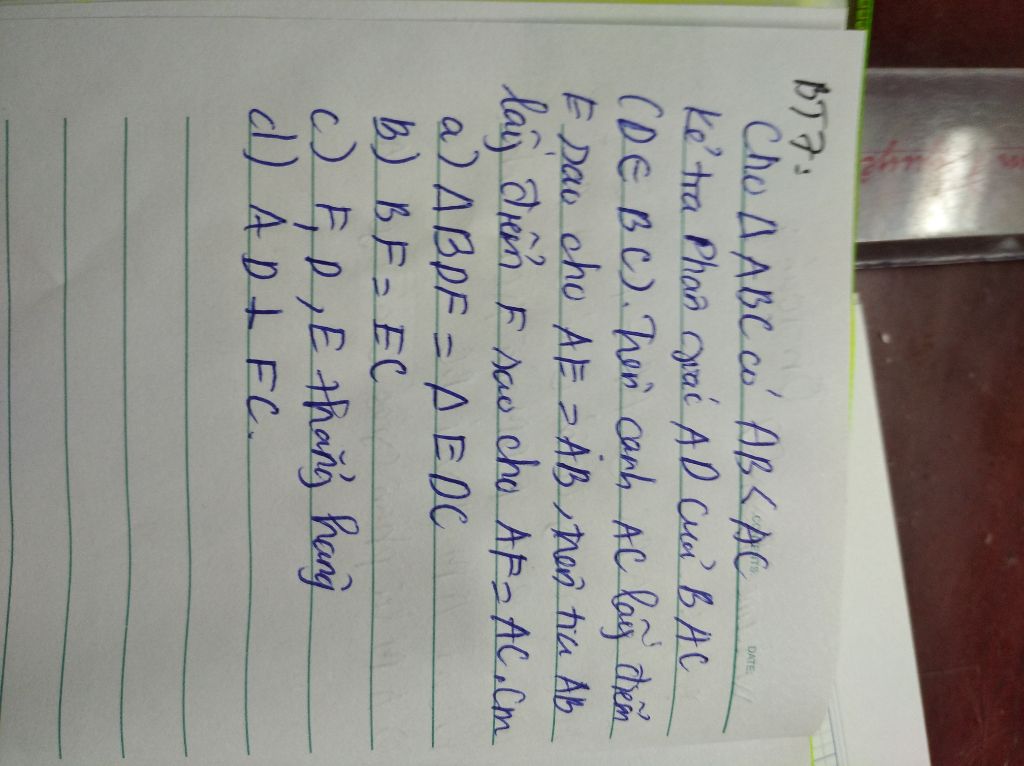 BT7:
Cho Δ ABC có AB < AC
Kẻ tia Phân giác AD của BAC
(D∈ BC). Trên cạnh AC lấy điểm
E sao cho AE = AB, trên tia AB
lấy điểm F sao cho AF = AC. Cm
a) Δ BDF = Δ EDC
b) BF = EC
c) F, D, E thẳng hàng
d) AD ⊥ FC.
DATE: